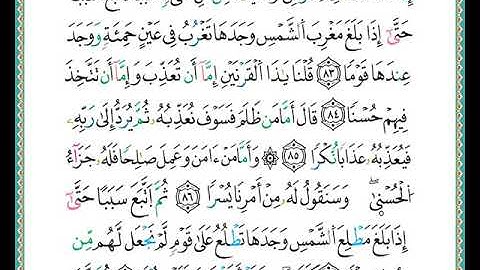 حَتَّىٰٓ إِذَا بَلَغَ مَغْرِبَ اَ۬لشَّمْسِ وَجَدَهَا تَغْرُبُ فِے عَيْنٍ حَمِئَةٍ وَوَجَدَ
عِندَهَا قَوْماً ٨٣ قُلْنَا يَٰذَا اَ۬لْقَرْنَيْنِ إِمَّآ أَن تُعَذِّبَ وَإِمَّآ أَن تَتَّخِذَ
فِيهِمْ حُسْناً ٨٤ قَالَ أَمَّا مَن ظَلَمَ فَسَوْفَ نُعَذِّبُهُۥ ثُمَّ يُرَدُّ إِلَىٰ رَبِّهِۦ
فَيُعَذِّبُهُۥ عَذَاباً نُّكُراً ٨٥ ۞ وَأَمَّا مَنَ اٰمَنَ وَعَمِلَ صَٰلِحاً فَلَهُۥ جَزَآءُ
اُ۬لْحُسْنۭىٰۖ وَسَنَقُولُ لَهُۥ مِنَ اَمْرِنَا يُسْراً ٨٦ ثُمَّ اَ۪تَّبَعَ سَبَباً حَتَّىٰٓ
إِذَا بَلَغَ مَطْلِعَ اَ۬لشَّمْسِ وَجَدَهَا تَطْلُعُ عَلَىٰ قَوْمٍ لَّمْ نَجْعَل لَّهُم مِّن